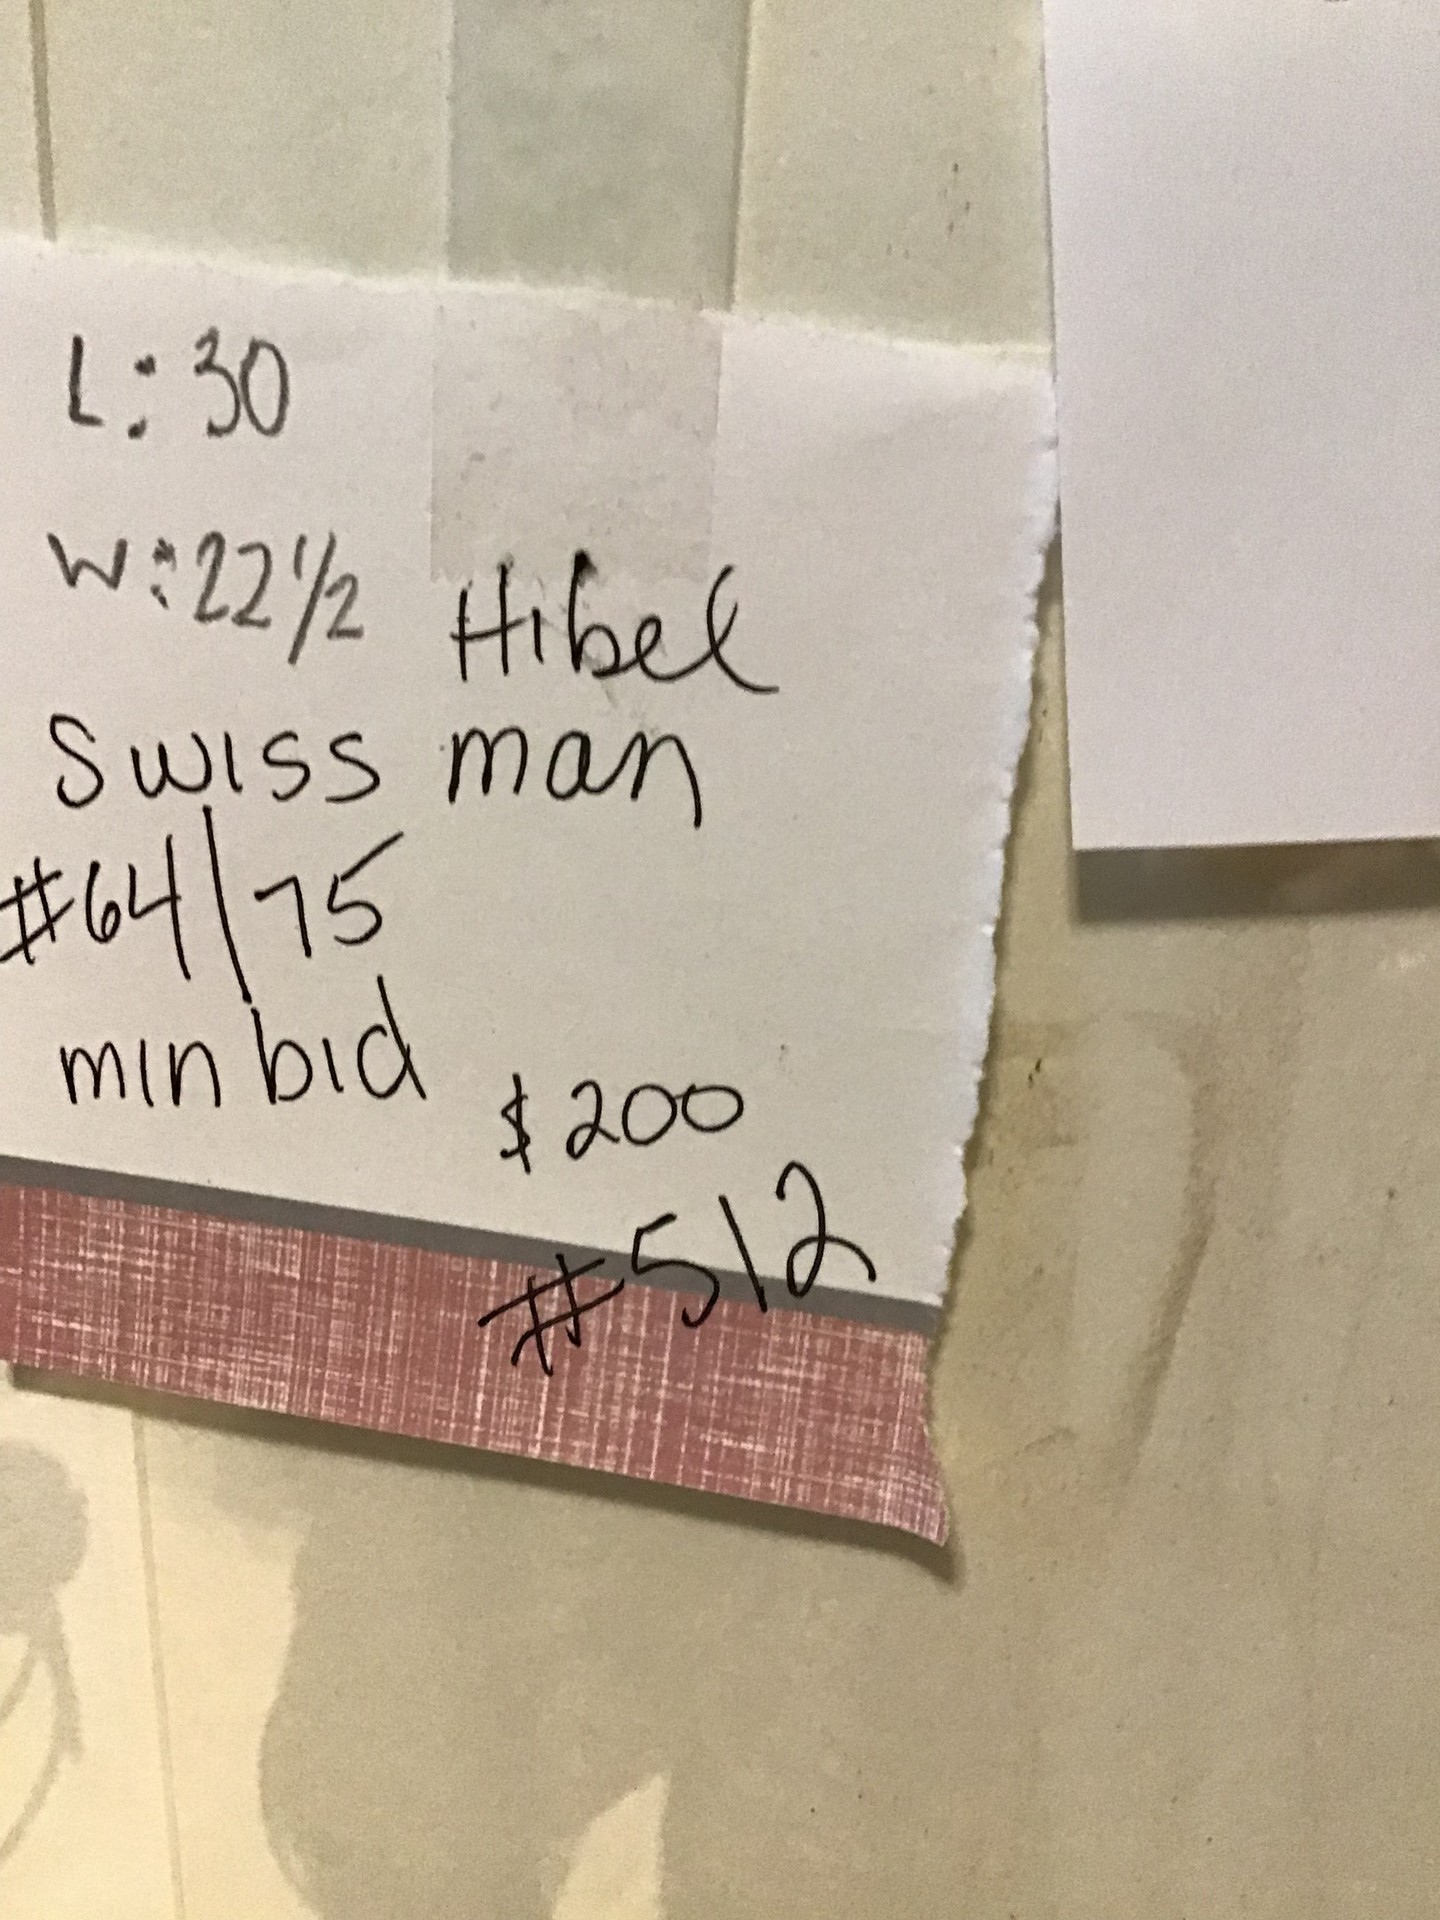 L: 30
W: 22 1/2 Hibel
Swiss man
#64/75
min bid $200
#512